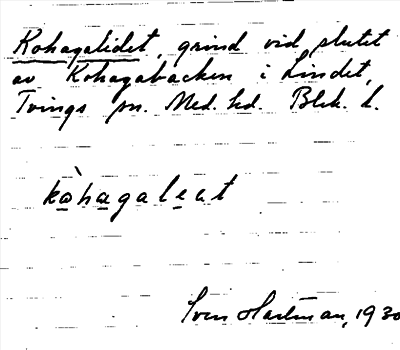 Kohagalidet, grind vid slutet
av Kohagabacken i Lindet,
Tvings sn. Med. hd. Blek. l.
kòhagaleat
Sven Hartman, 1930